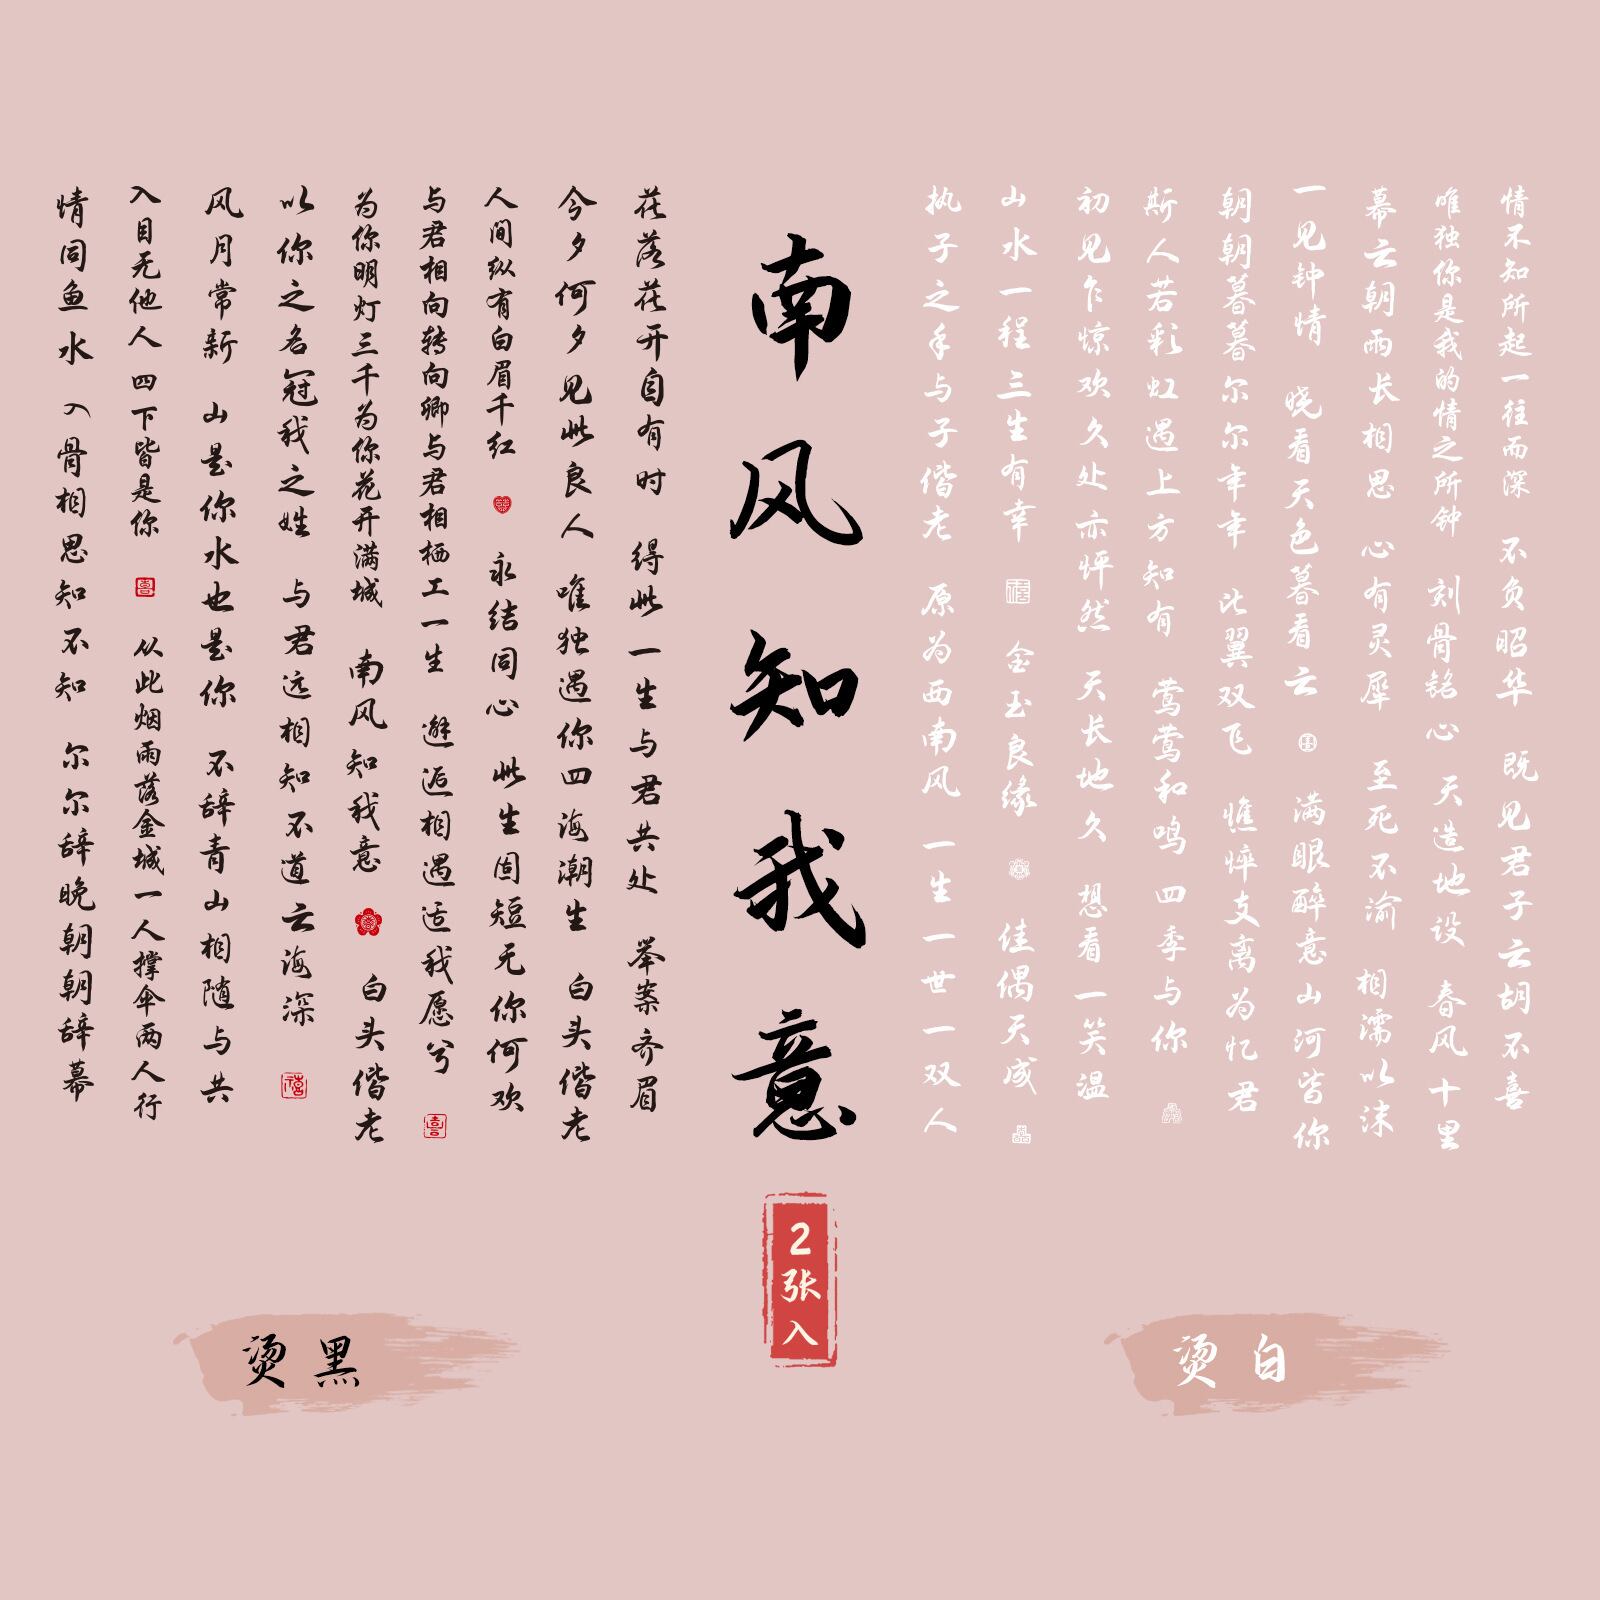 南风知我意
2张入
情不知所起一往而深 不负昭华 既见君子云胡不喜
唯独你是我的情之所钟 刻骨铭心 天造地设 春风十里
幕云朝雨长相思 心有灵犀 至死不渝 相濡以沫
一见钟情 晓看天色暮看云 满眼醉意山河皆你
朝朝暮暮尔尔年年 比翼双飞 憔悴支离为忆君
斯人若彩虹遇上方知有 莺莺和鸣 四季与你
初见乍惊欢久处亦怦然 天长地久 想看一笑温
山水一程三生有幸 金玉良缘 佳偶天成
执子之手与子偕老 原为西南风 一生一世一双人
烫白
花落花开自有时 得此一生与君共处 举案齐眉
今夕何夕见此良人 唯独遇你四海潮生 白头偕老
人间纵有百眉千红 永结同心 此生固短无你何欢
与君相向转向卿与君相栖工一生 邂逅相遇适我愿兮
为你明灯三千为你花开满城 南风知我意 白头偕老
以你之名冠我之姓 与君远相知不道云海深
风月常新 山是你水也是你 不辞青山相随与共
入目无他人四下皆是你 从此烟雨落金城一人撑伞两人行
情同鱼水 入骨相思知不知 尔尔辞晚朝朝辞幕
烫黑